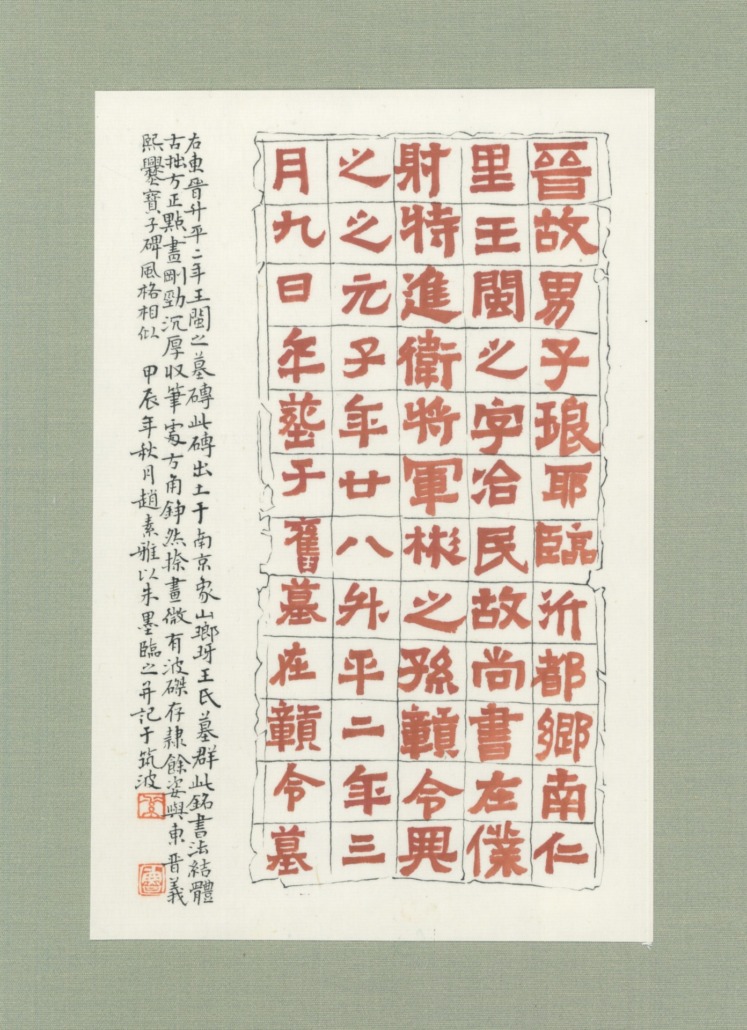 晉故男子琅耶臨沂都鄉南仁
里王閩之字冶民故尚書左僕
射特進衛將軍彬之孫贛令興
之之元子年廿八升平二年三
月九日卒葬于舊墓在贛令墓
右東晉升平二年王閩之墓磚此磚出土于南京象山瑯玡王氏墓群此銘書法結體
古拙方正點畫剛勁沉厚收筆處方角錚然捺畫微有波磔存隸餘姿與東晉義
熙爨寶子碑風格相似 甲辰年秋月趙素雅以朱墨臨之并記于筑波